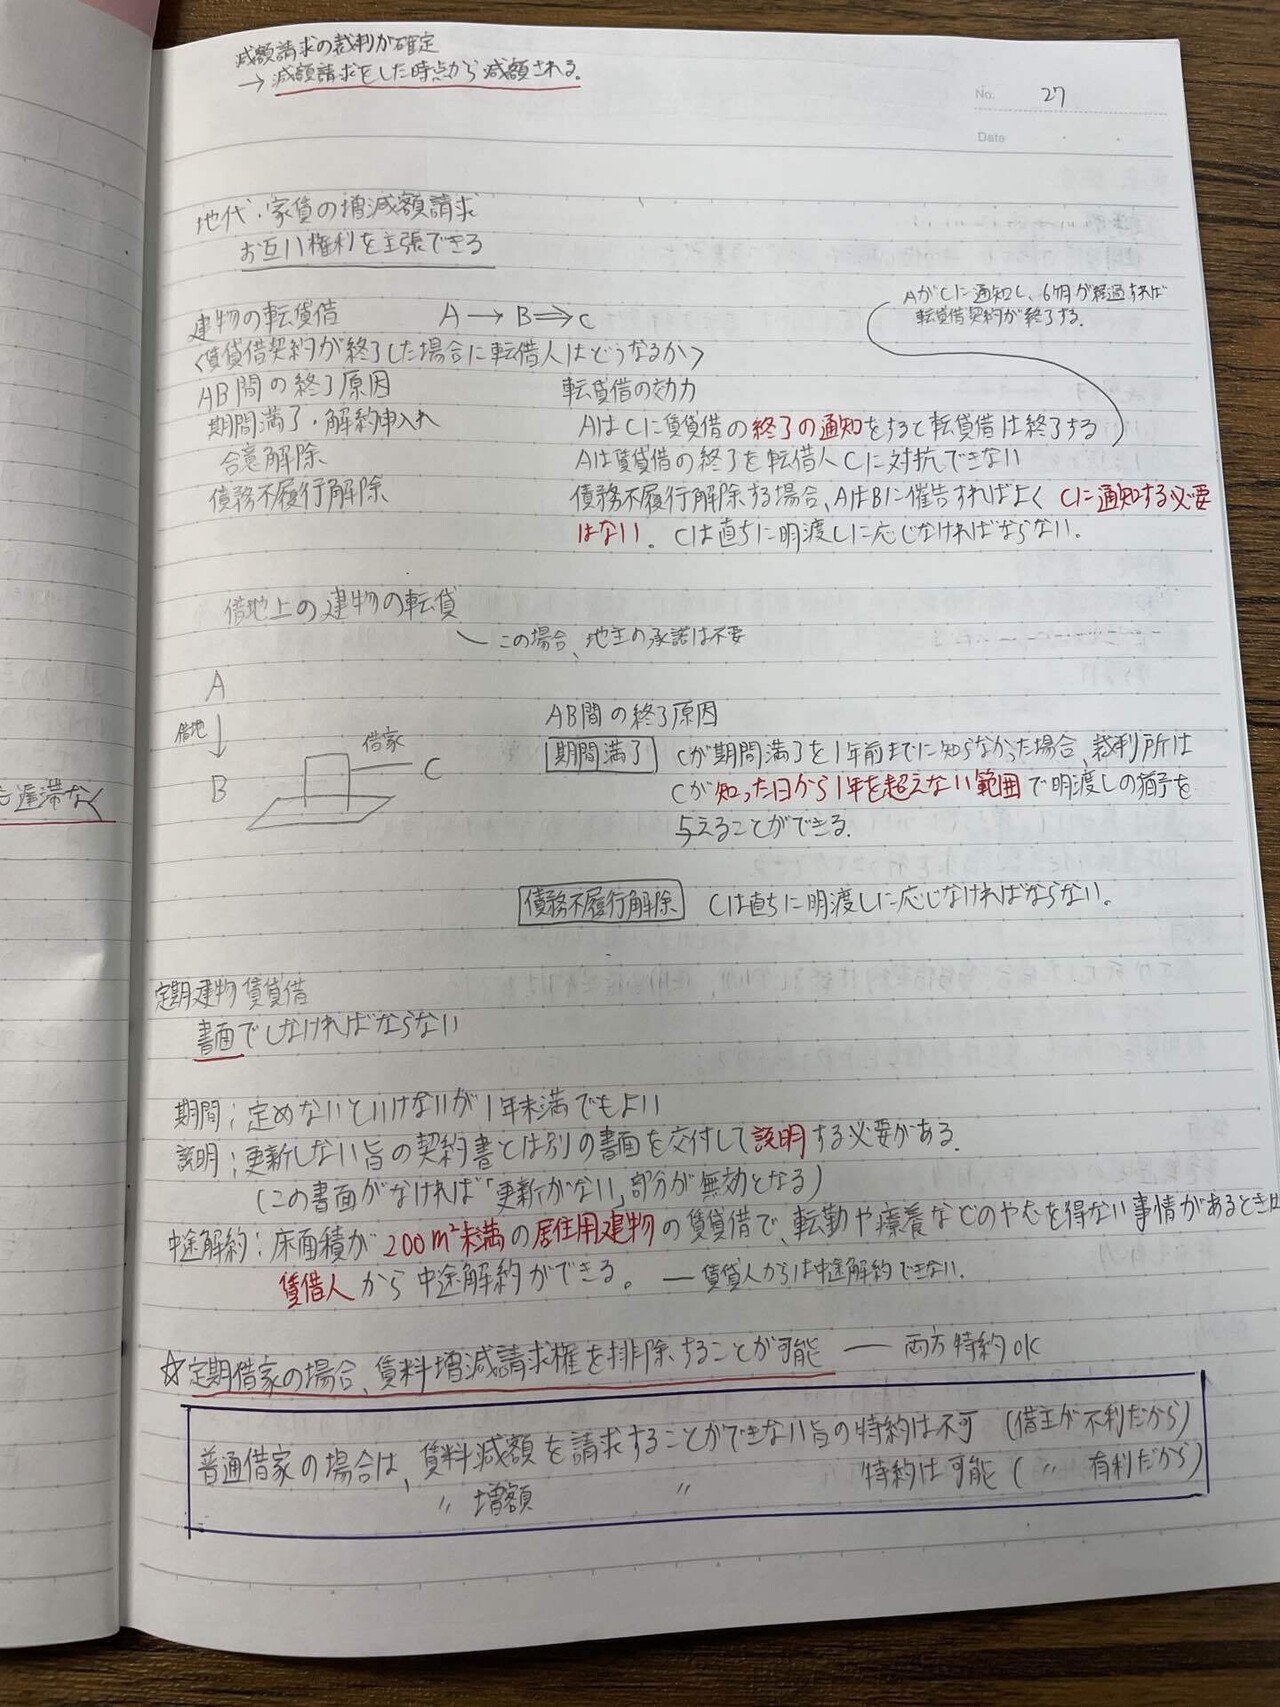 減額請求の裁判が確定
→減額請求をした時点から減額される。
No. 27
Date
地代・家賃の増減額請求
お互い権利を主張できる
AがCに通知し、6ヶ月が経過すれば
転貸借契約が終了する。
建物の転貸借 A→B⇒C
〈賃貸借契約が終了した場合に転借人はどうなるか〉
AB間の終了原因 転貸借の効力
期間満了・解約申入れ AはCに賃貸借の終了の通知をすると転貸借は終了する
合意解除 Aは賃貸借の終了を転借人Cに対抗できない
債務不履行解除 債務不履行解除する場合、AはBに催告すればよく Cに通知する必要
はない。Cは直ちに明渡しに応じなければならない。
借地上の建物の転貸
この場合、地主の承諾は不要
A
借地
B
借家
C
AB間の終了原因
期間満了 Cが期間満了を1年前までに知らなかった場合、裁判所は
Cが知った日から1年を超えない範囲で明渡しの猶予を
与えることができる。
も遅滞なく
債務不履行解除 Cは直ちに明渡しに応じなければならない。
定期建物賃貸借
書面でしなければならない
期間；定めないといけないが1年未満でもよい
説明；更新しない旨の契約書とは別の書面を交付して説明する必要がある。
(この書面がなければ「更新がない」部分が無効となる)
中途解約：床面積が200m²未満の居住用建物の賃貸借で、転勤や療養などのやむを得ない事情があるときは
賃借人から中途解約ができる。—賃貸人からは中途解約できない。
☆定期借家の場合、賃料増減請求権を排除することが可能 — 両方特約OK
普通借家の場合は、賃料減額を請求することができない旨の特約は不可 (借主が不利だから)
〃 増額 〃 特約は可能 (〃 有利だから)